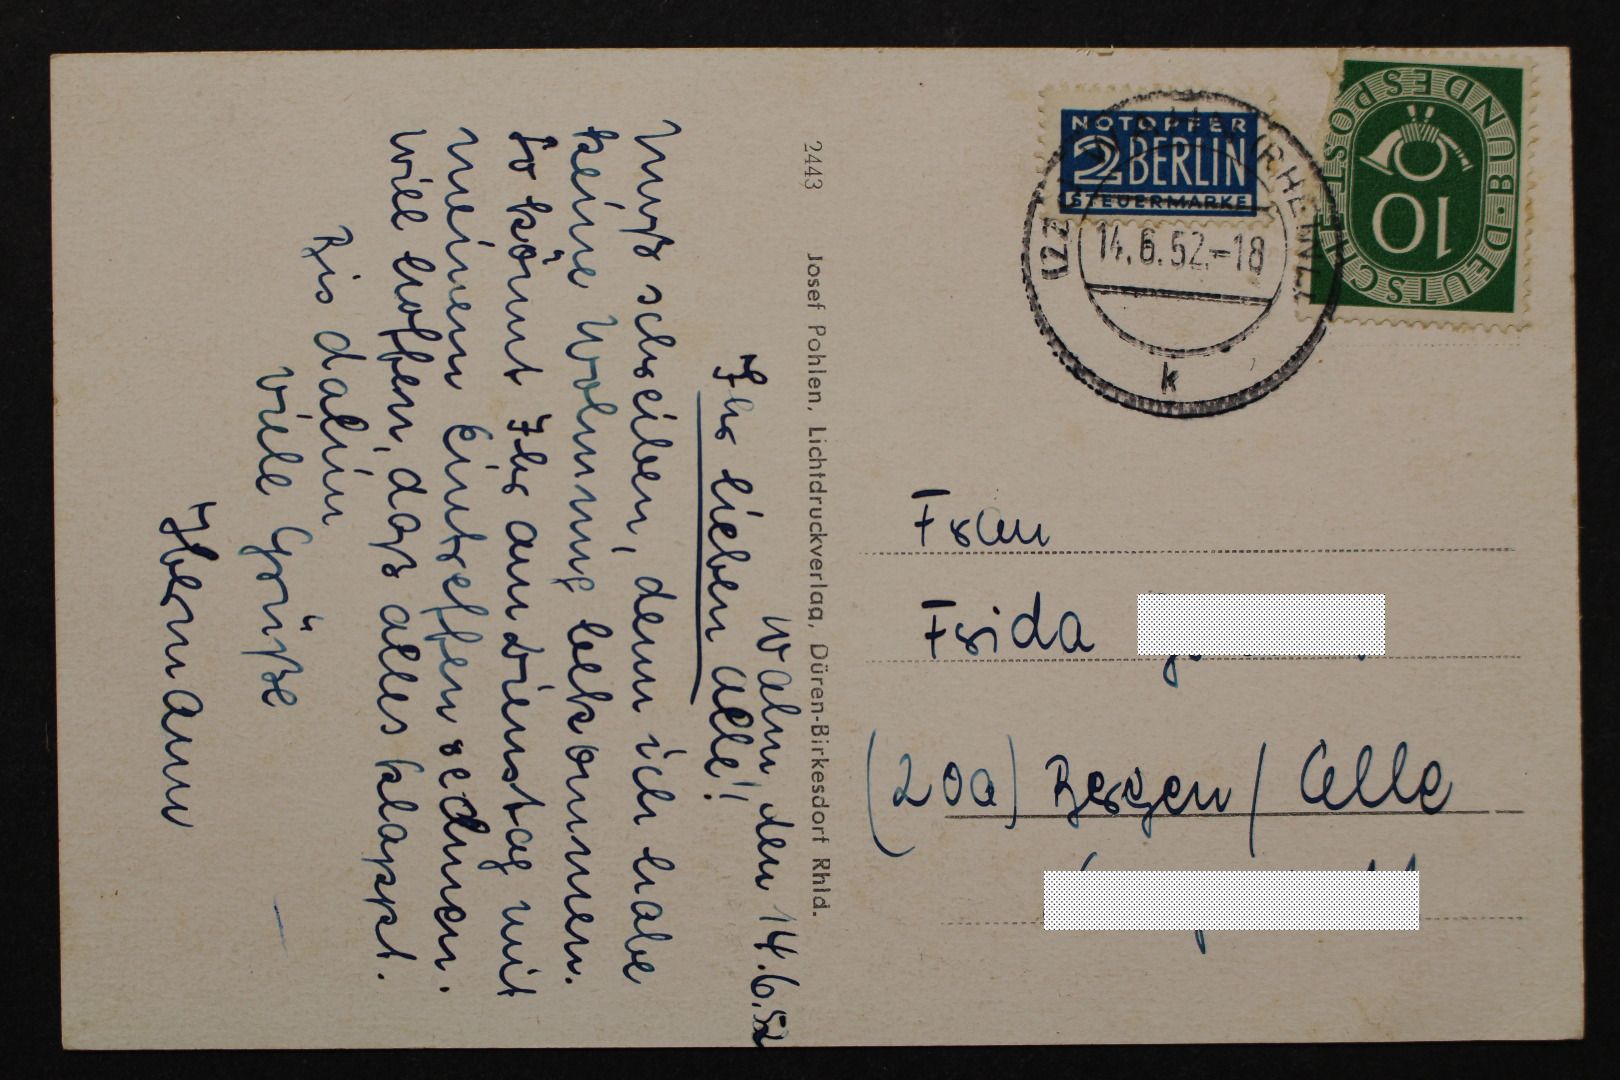 Wahn, den 14.6.52
Ihr lieben alle!
Muß schreiben, denn ich habe
keine Wohnung bekommen.
So könnt Ihr am Dienstag mit
meinem Eintreffen rechnen.
Will hoffen, daß alles klappt.
Bis dahin
viele Grüße
Hermann
2443 Josef Pohlen, Lichtdruckverlag, Düren-Birkesdorf Rhld.
NOTOPFER
2 BERLIN
STEUERMARKE
14.6.52.-18
k
DEUTSCHE BUNDESPOST
10
Frau
Frida
(20a) Bergen / Celle